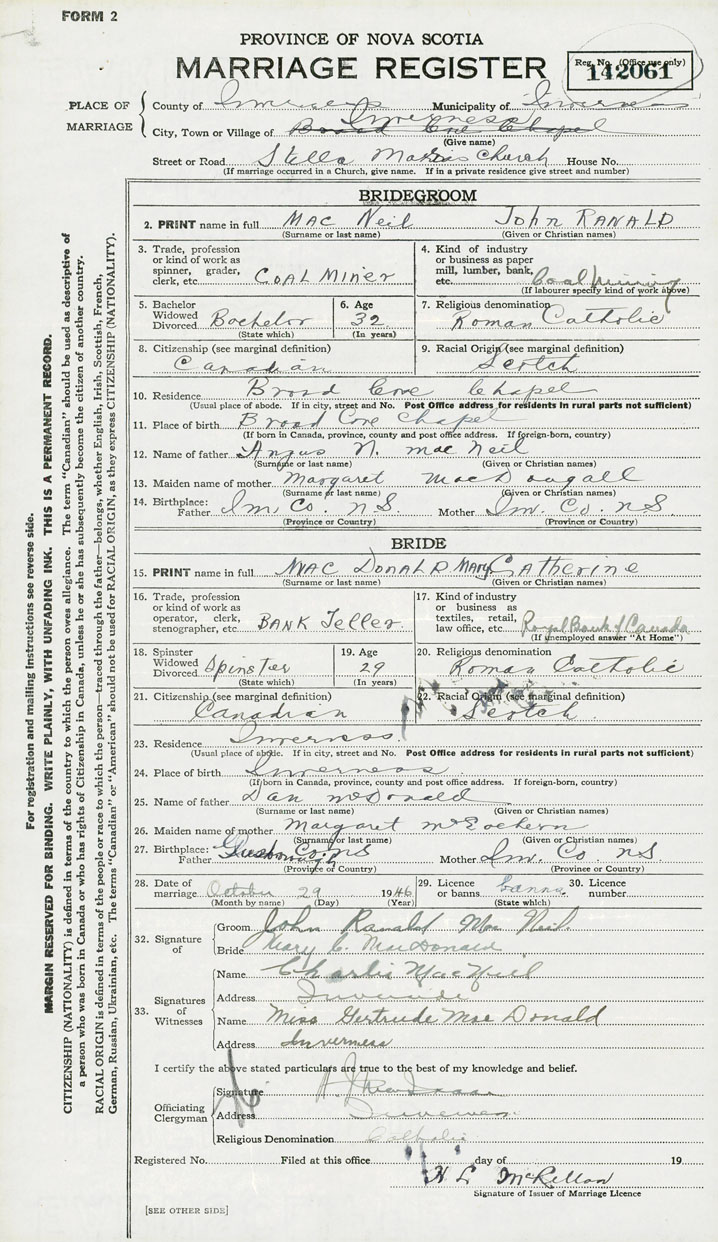 FORM 2
PROVINCE OF NOVA SCOTIA
MARRIAGE REGISTER
Reg. No. (Office use only)
142061
PLACE OF MARRIAGE
County of Inverness Municipality of Inverness
Inverness
City, Town or Village of Broad Cove Chapel
(Give name)
Street or Road Stella Maris Church House No.
(If marriage occurred in a Church, give name. If in a private residence give street and number)
BRIDEGROOM
2. PRINT name in full MAC Neil John RANALD
(Surname or last name) (Given or Christian names)
3. Trade, profession or kind of work as spinner, grader, clerk, etc. COAL MINER
4. Kind of industry or business as paper mill, lumber, bank, etc. Coal Mining
(If labourer specify kind of work above)
5. Bachelor Widowed Divorced Bachelor
(State which)
6. Age 32
(In years)
7. Religious denomination Roman Catholic
8. Citizenship (see marginal definition) Canadian
9. Racial Origin (see marginal definition) Scotch
10. Residence Broad Cove Chapel
(Usual place of abode. If in city, street and No. Post Office address for residents in rural parts not sufficient)
11. Place of birth Broad Cove Chapel
(If born in Canada, province, county and post office address. If foreign-born, country)
12. Name of father Angus N. Mac Neil
(Surname or last name) (Given or Christian names)
13. Maiden name of mother Margaret MacDougall
(Surname or last name) (Given or Christian names)
14. Birthplace: Father Inv. Co. N.S. Mother Inv. Co. N.S.
(Province or Country) (Province or Country)
BRIDE
15. PRINT name in full MAC DONALD MARY CATHERINE
(Surname or last name) (Given or Christian names)
16. Trade, profession or kind of work as operator, clerk, stenographer, etc. BANK Teller
17. Kind of industry or business as textiles, retail, law office, etc. Royal Bank of Canada
(If unemployed answer "At Home")
18. Spinster Widowed Divorced Spinster
(State which)
19. Age 29
(In years)
20. Religious denomination Roman Catholic
21. Citizenship (see marginal definition) Canadian
22. Racial Origin (see marginal definition) Scotch
23. Residence Inverness
(Usual place of abode. If in city, street and No. Post Office address for residents in rural parts not sufficient)
24. Place of birth Inverness
(If born in Canada, province, county and post office address. If foreign-born, country)
25. Name of father Dan McDonald
(Surname or last name) (Given or Christian names)
26. Maiden name of mother Margaret McEachern
(Surname or last name) (Given or Christian names)
27. Birthplace: Father Guysborough Co. N.S. Mother Inv. Co N.S
(Province or Country) (Province or Country)
28. Date of marriage October 29 1946
(Month by name) (Day) (Year)
29. Licence or banns banns
(State which)
30. Licence number
32. Signature of
Groom John Ranald Mac Neil
Bride Mary C. MacDonald
33. Signatures of Witnesses
Name Charlie MacNeil
Address Inverside
Name Miss Gertrude Mac Donald
Address Inverness
I certify the above stated particulars are true to the best of my knowledge and belief.
Officiating Clergyman
Signature
Address Inverness
Religious Denomination Catholic
Registered No. Filed at this office day of 19
Signature of Issuer of Marriage Licence
[SEE OTHER SIDE]
For registration and mailing instructions see reverse side.
MARGIN RESERVED FOR BINDING. WRITE PLAINLY, WITH UNFADING INK. THIS IS A PERMANENT RECORD.
CITIZENSHIP (NATIONALITY) is defined in terms of the country to which the person owes allegiance. The term "Canadian" should be used as descriptive of
a person who was born in Canada or who has rights of Citizenship in Canada, unless he or she has subsequently become the citizen of another country.
RACIAL ORIGIN is defined in terms of the people or race to which the person—traced through the father—belongs, whether English, Irish, Scottish, French,
German, Russian, Ukrainian, etc. The terms "Canadian" or "American" should not be used for RACIAL ORIGIN, as they express CITIZENSHIP (NATIONALITY).